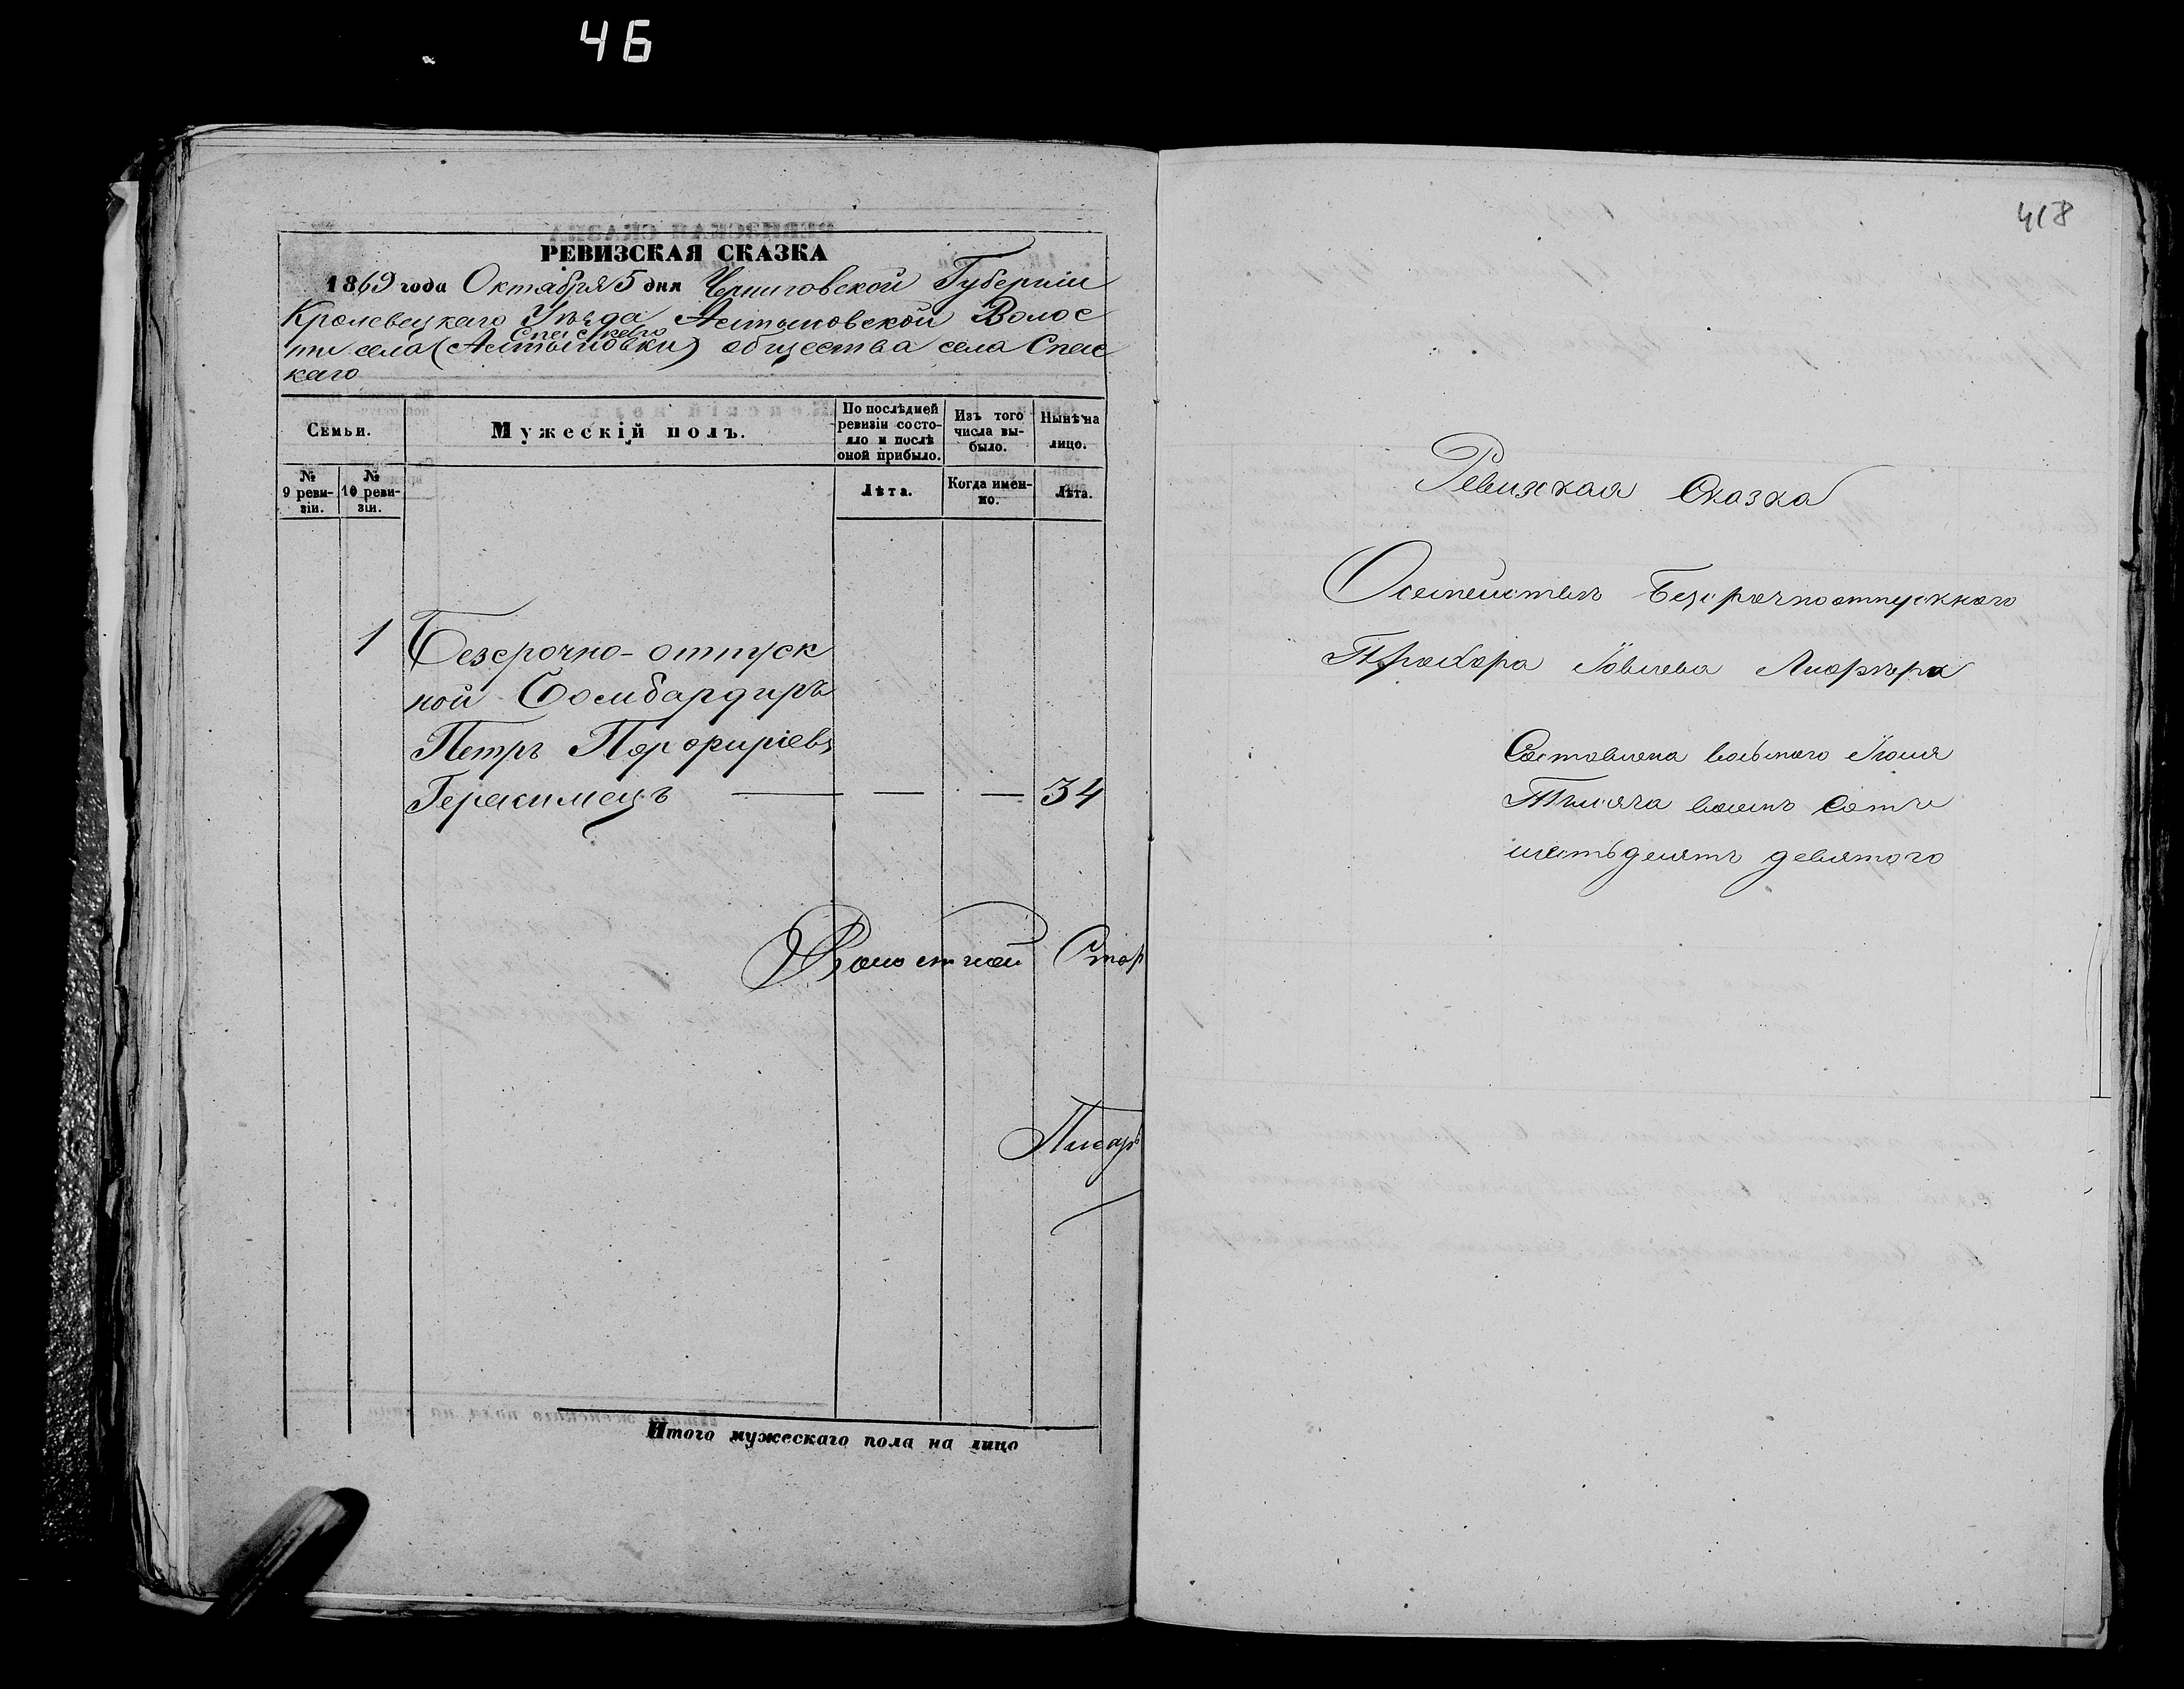 46
418
РЕВИЗСКАЯ СКАЗКА
1869 года Октября 5 дня Черниговской Губерніи
Кролевецкаго Уѣзда Алтыновской Волос
Спасскаго
ти села (Алтыновки) общества села Спас
каго
Семьи.
Мужескій полъ.
По послѣдней ревизіи состояло и послѣ оной прибыло.
Изъ того числа выбыло.
Нынѣ на лицо.
№ 9 ревизіи.
№ 10 ревизіи.
Лѣта.
Когда именно.
Лѣта.
1 Безсрочно-отпуск
ной Бомбардиръ
Петръ Порфиріевъ
Герасимецъ — — — 34
Волостной Стар
Писарь
Итого мужескаго пола на лицо
Ревизская Сказка
О семействѣ Безсрочноотпускнаго
Прохора Іовлева
Составлена восьмаго Іюля
Тысяча восемь сотъ
шестьдесятъ девятого